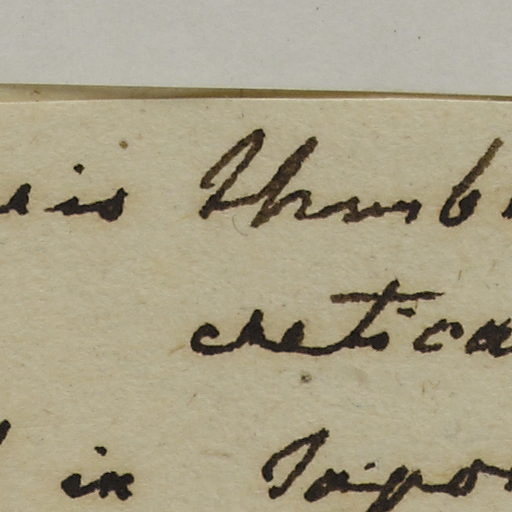 is Thunb
cretica
in Japon